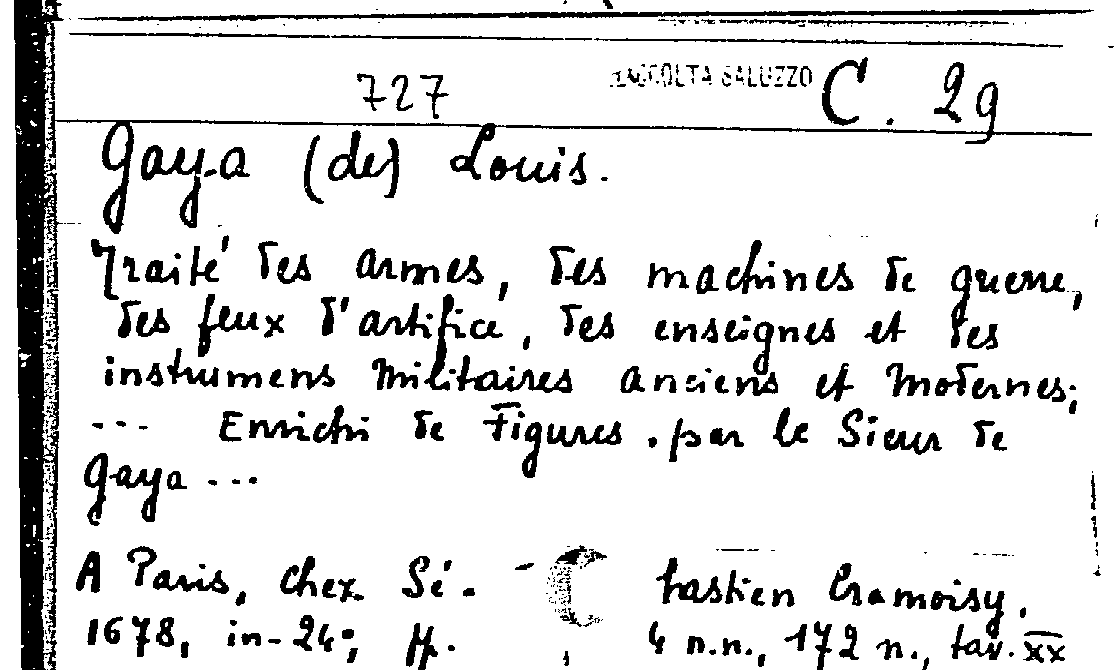 727 RACCOLTA SALUZZO C. 29
Gaya (de) Louis.
Traité des armes, des machines de guerre,
des feux d'artifice, des enseignes et des
instrumens militaires anciens et modernes;
--- Enrichi de Figures. par le Sieur de
Gaya ---
A Paris, chez Sé- bastien Cramoisy.
1678, in-24°; ff. 4 n.n., 172 n., tav. XX